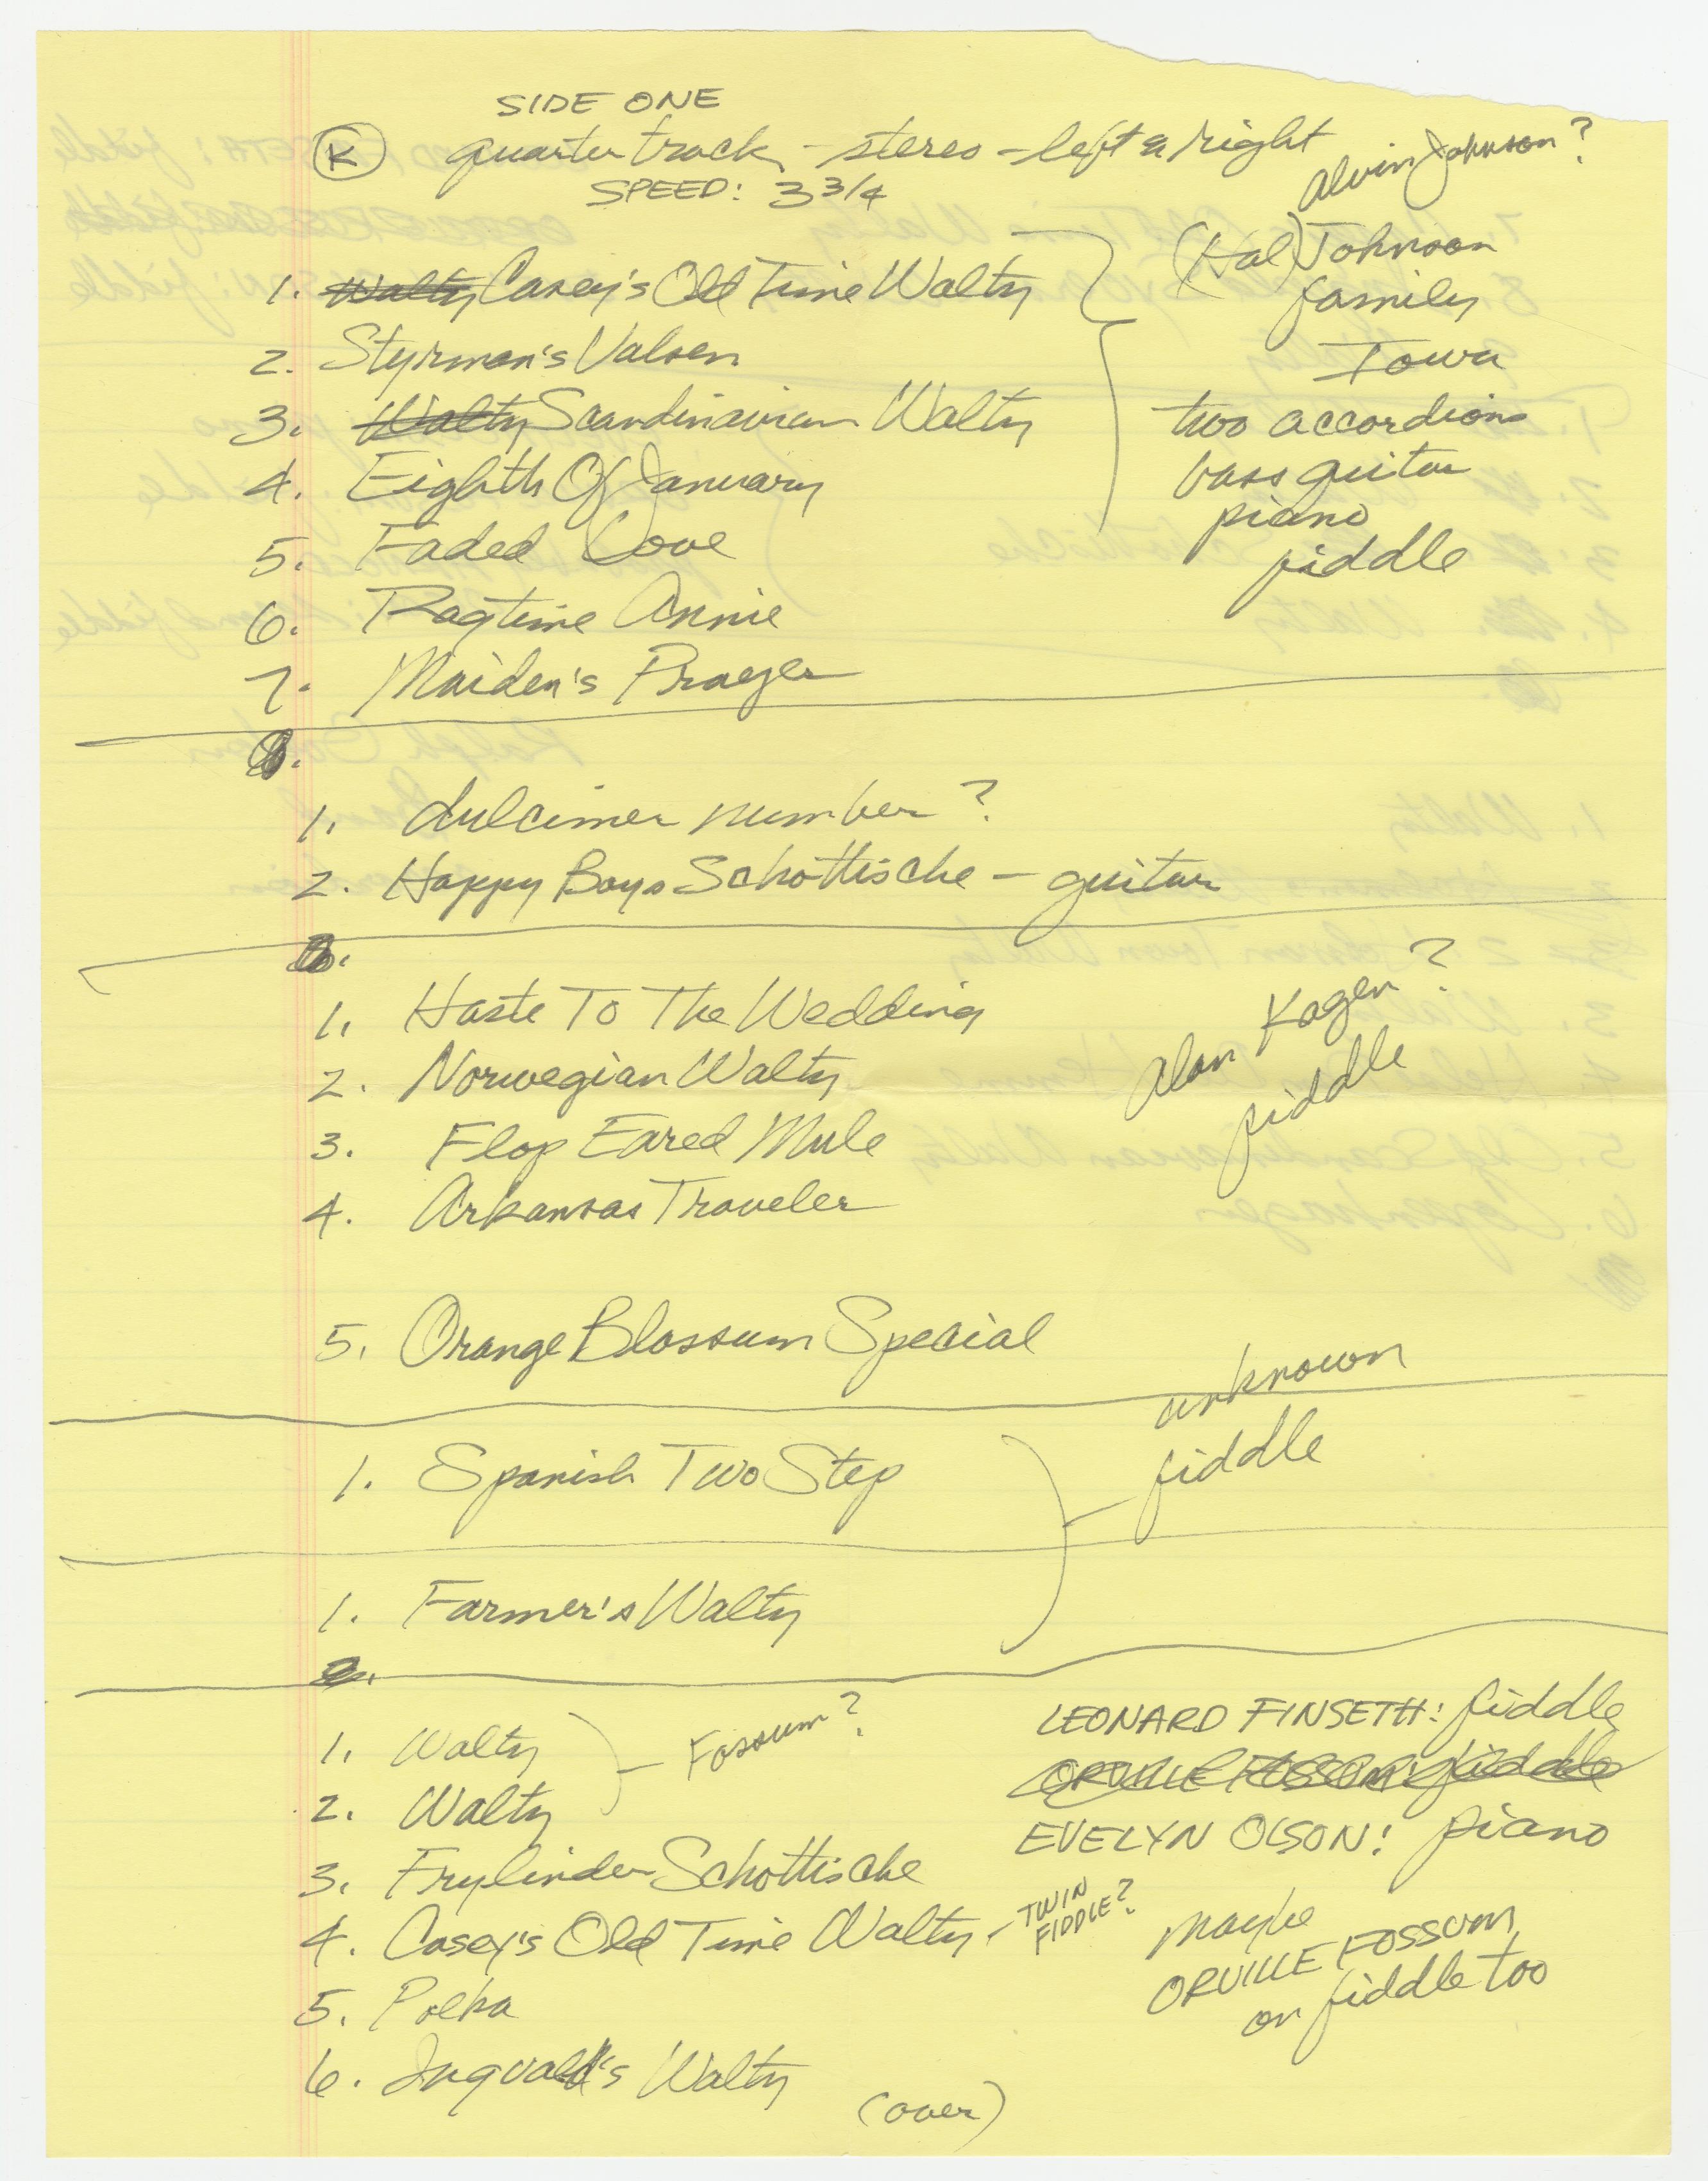 SIDE ONE
K quarter track - stereo - left & right
SPEED: 3 3/4
Alvin Johnson?
(Hal) Johnson
family
Iowa
two accordions
bass guitar
piano
fiddle
1. Waltz Casey's Old Time Waltz
2. Styrman's Valsen
3. Waltz Scandinavian Waltz
4. Eighth Of January
5. Faded Love
6. Ragtime Annie
7. Maiden's Prayer
8.
1. dulcimer number?
2. Happy Boys Schottische - guitar
1. Haste To The Wedding
2. Norwegian Waltz
3. Flop Eared Mule
4. Arkansas Traveler
Alan Kagen?
fiddle
5. Orange Blossum Special
1. Spanish Two Step
unknown
fiddle
1. Farmer's Waltz
2.
1. Waltz
2. Waltz
Fossum?
3. Frylinder Schottische
4. Casey's Old Time Waltz - TWIN
FIDDLE?
5. Polka
6. Ingvald's Waltz
LEONARD FINSETH: fiddle
ORVILLE FOSSUM: fiddle
EVELYN OLSON: piano
maybe
ORVILLE FOSSUM
on fiddle too
(over)